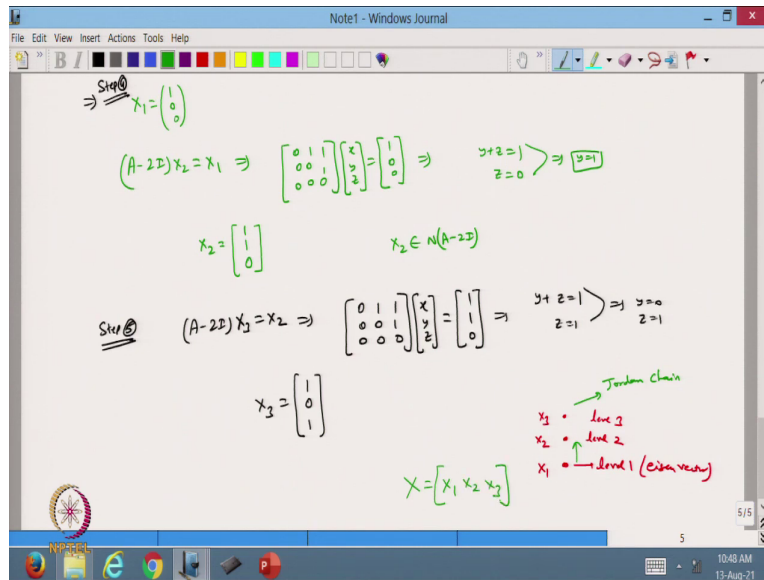 Note1 - Windows Journal
File Edit View Insert Actions Tools Help
B I
⇒ Step ④
X₁ = (1 0 0)
(A-2I)X₂ = X₁ ⇒ [0 1 1; 0 0 1; 0 0 0] [x y z] = [1 0 0] ⇒ y+z=1 z=0 ⇒ y=1
X₂ = [1 1 0] X₂ ∈ N(A-2I)
Step ⑤ (A-2I)X₃ = X₂ ⇒ [0 1 1; 0 0 1; 0 0 0] [x y z] = [1 1 0] ⇒ y+z=1 z=1 ⇒ y=0 z=1
X₃ = [1 0 1]
Jordan Chain
X₃ • level 3
X₂ • level 2
X₁ • → level 1 (eigenvector)
X = [X₁ X₂ X₃]
5/5
NPTEL
5
10:48 AM
13-Aug-21